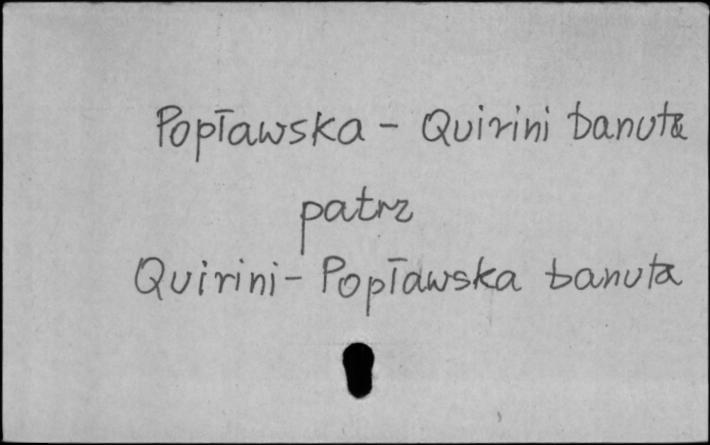 Popławska - Quirini Danuta
patrz
Quirini - Popławska Danuta